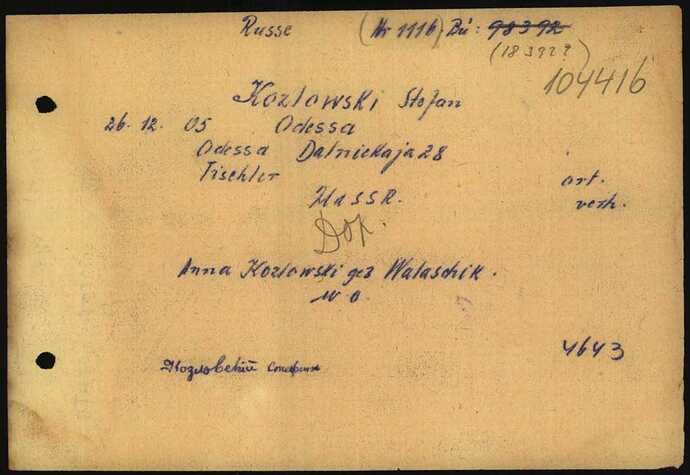 Russe (Nr 1116) Bu: 98392
(18392?)
104416
Kozlowski Stefan
26. 12. 05 Odessa
Odessa Dalnickaja 28
Tischler ort.
UdSSR. verh.
Dop.
Anna Kozlowski geb Walaschik.
w. o.
4643
Козловский Стефан